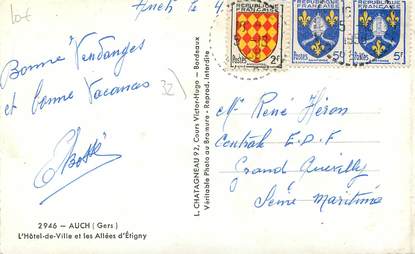 Lot
Auch le 4
Bonne Vendanges
et bonne Vacances
32)
2946 — AUCH (Gers)
L'Hôtel-de-Ville et les Allées d'Étigny
L. CHATAGNEAU 92, Cours Victor-Hugo - Bordeaux
Véritable Photo au Bromure - Reprod. interdite
REPUBLIQUE FRANÇAISE
Postes 2f
REPUBLIQUE FRANÇAISE
Postes 5f
REPUBLIQUE FRANÇAISE
Postes 5f
Mr René Héron
Centrale E.D.F
Grand Quevilly
Seine Maritime